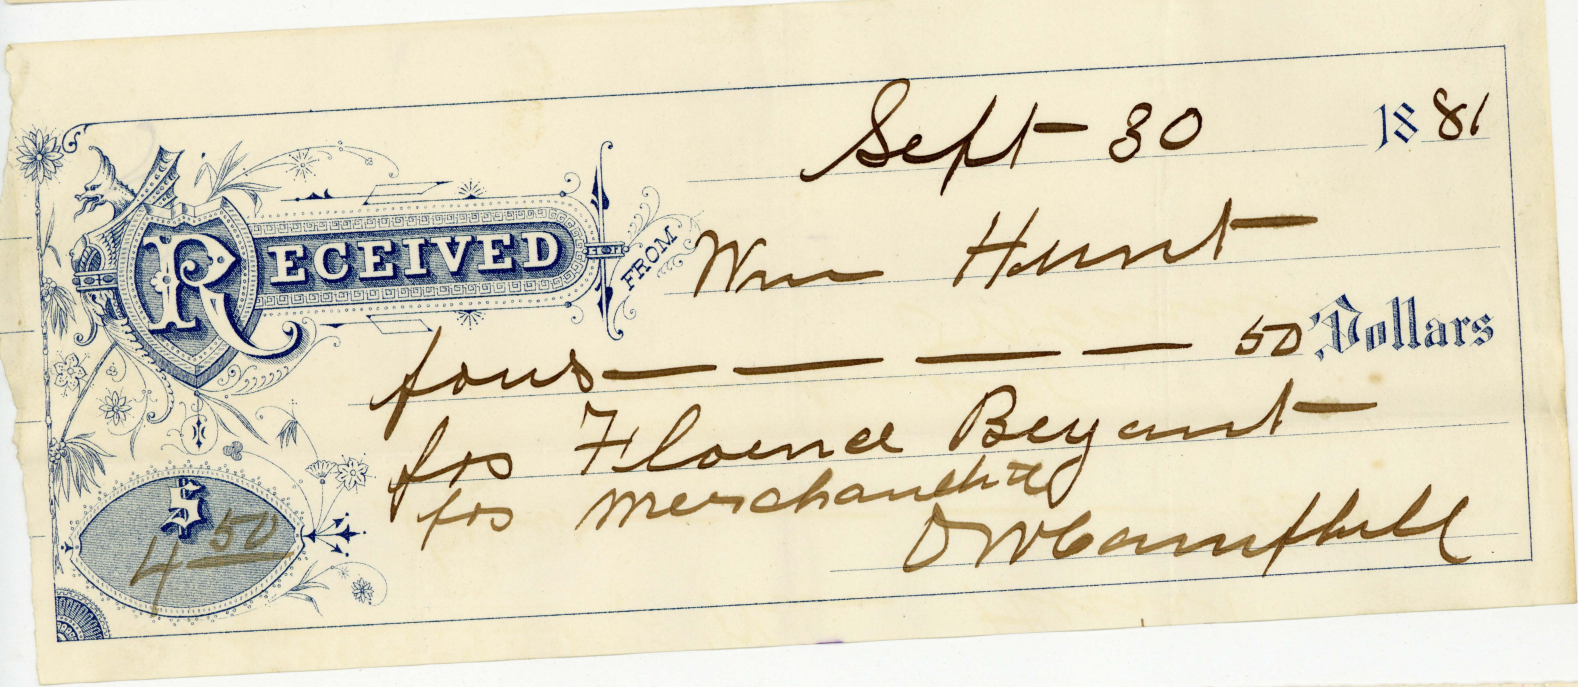 Sept 30 1881
RECEIVED FROM Wm Hunt
four 50 Dollars
for Florence Beyant
for Merchandise
D W Campbell
$ 4 50